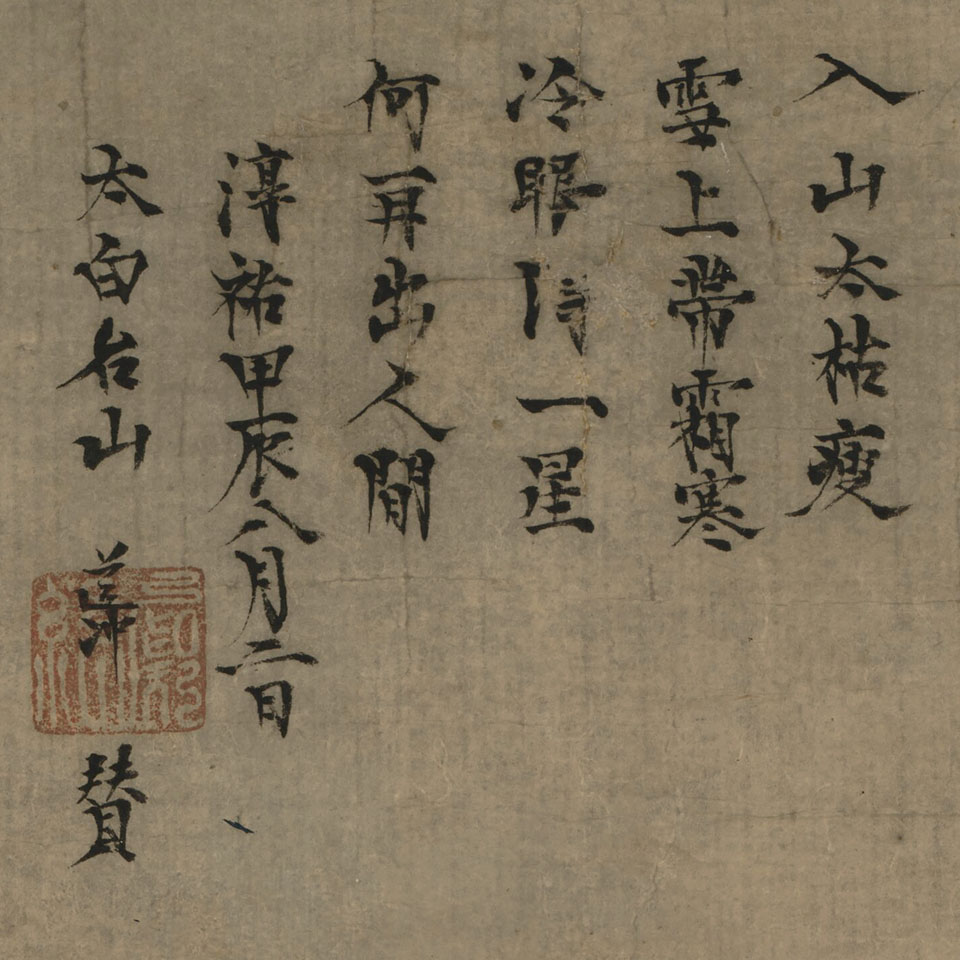 入山太枯瘦
雪上帶霜寒
冷眼得一星
何再出人間
淳祐甲辰八月二日
太白名山 道冲 贊